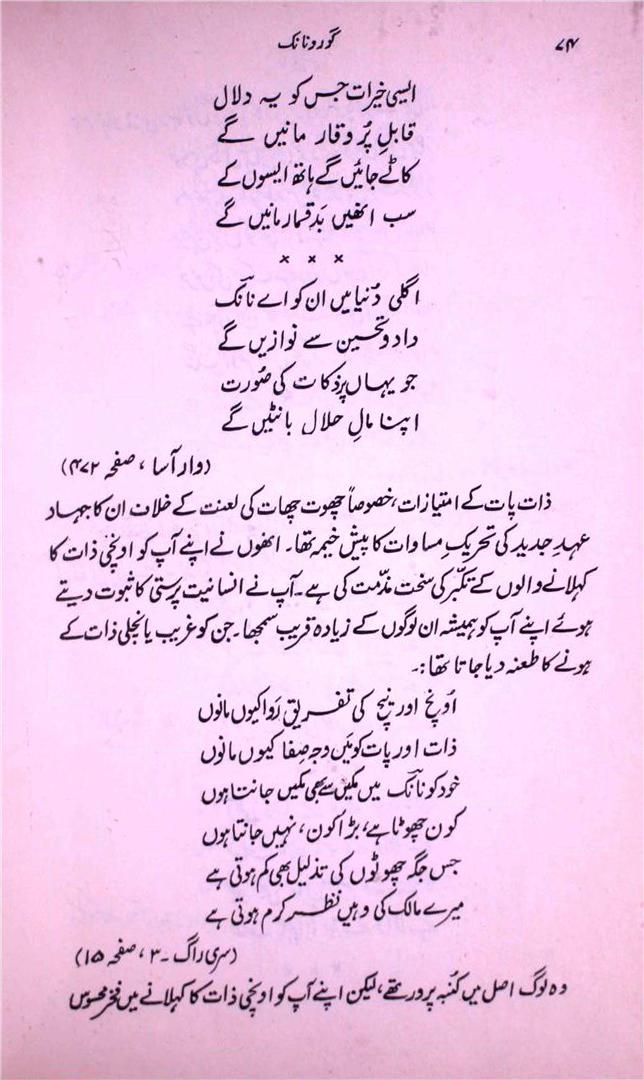 ۷۴ گورو نانک
ایسی خیرات جس کو یہ دلال
قابلِ پُر وقار مانیں گے
کاٹے جائیں گے ہاتھ ایسوں کے
سب انھیں بدقمار مانیں گے
× × ×
اگلی دُنیا میں ان کو اے نانک
داد و تحسین سے نوازیں گے
جو یہاں پر زکات کی صُورت
اپنا مالِ حلال بانٹیں گے
(وار آسا ، صفحہ ۴۷۲)
ذات پات کے امتیازات، خصوصاً چھوت چھات کی لعنت کے خلاف ان کا جہاد
عہدِ جدید کی تحریکِ مساوات کا پیش خیمہ تھا۔ انھوں نے اپنے آپ کو اونچی ذات کا
کہلانے والوں کے تکبّر کی سخت مذّمت کی ہے۔ آپ نے انسانیت پرستی کا ثبوت دیتے
ہوئے اپنے آپ کو ہمیشہ ان لوگوں کے زیادہ قریب سمجھا۔ جن کو غریب یا نچلی ذات کے
ہونے کا طعنہ دیا جاتا تھا:۔
اُونچ اور نیچ کی تفریق رَوا کیوں مانوں
ذات اور پات کو مَیں وجہِ صفا کیوں مانوں
خود کو نانک میں مکیں سے بھی مکیں جانتا ہوں
کون چھوٹا ہے، بڑا کون، نہیں جانتا ہوں
جس جگہ چھوٹوں کی تذلیل بھی کم ہوتی ہے
میرے مالک کی وہیں نظرِ کرم ہوتی ہے
(سری راگ ۔ ۳، صفحہ ۱۵)
وہ لوگ اصل میں کُنبہ پرور تھے، لیکن اپنے آپ کو اونچی ذات کا کہلانے میں فخر محسوس